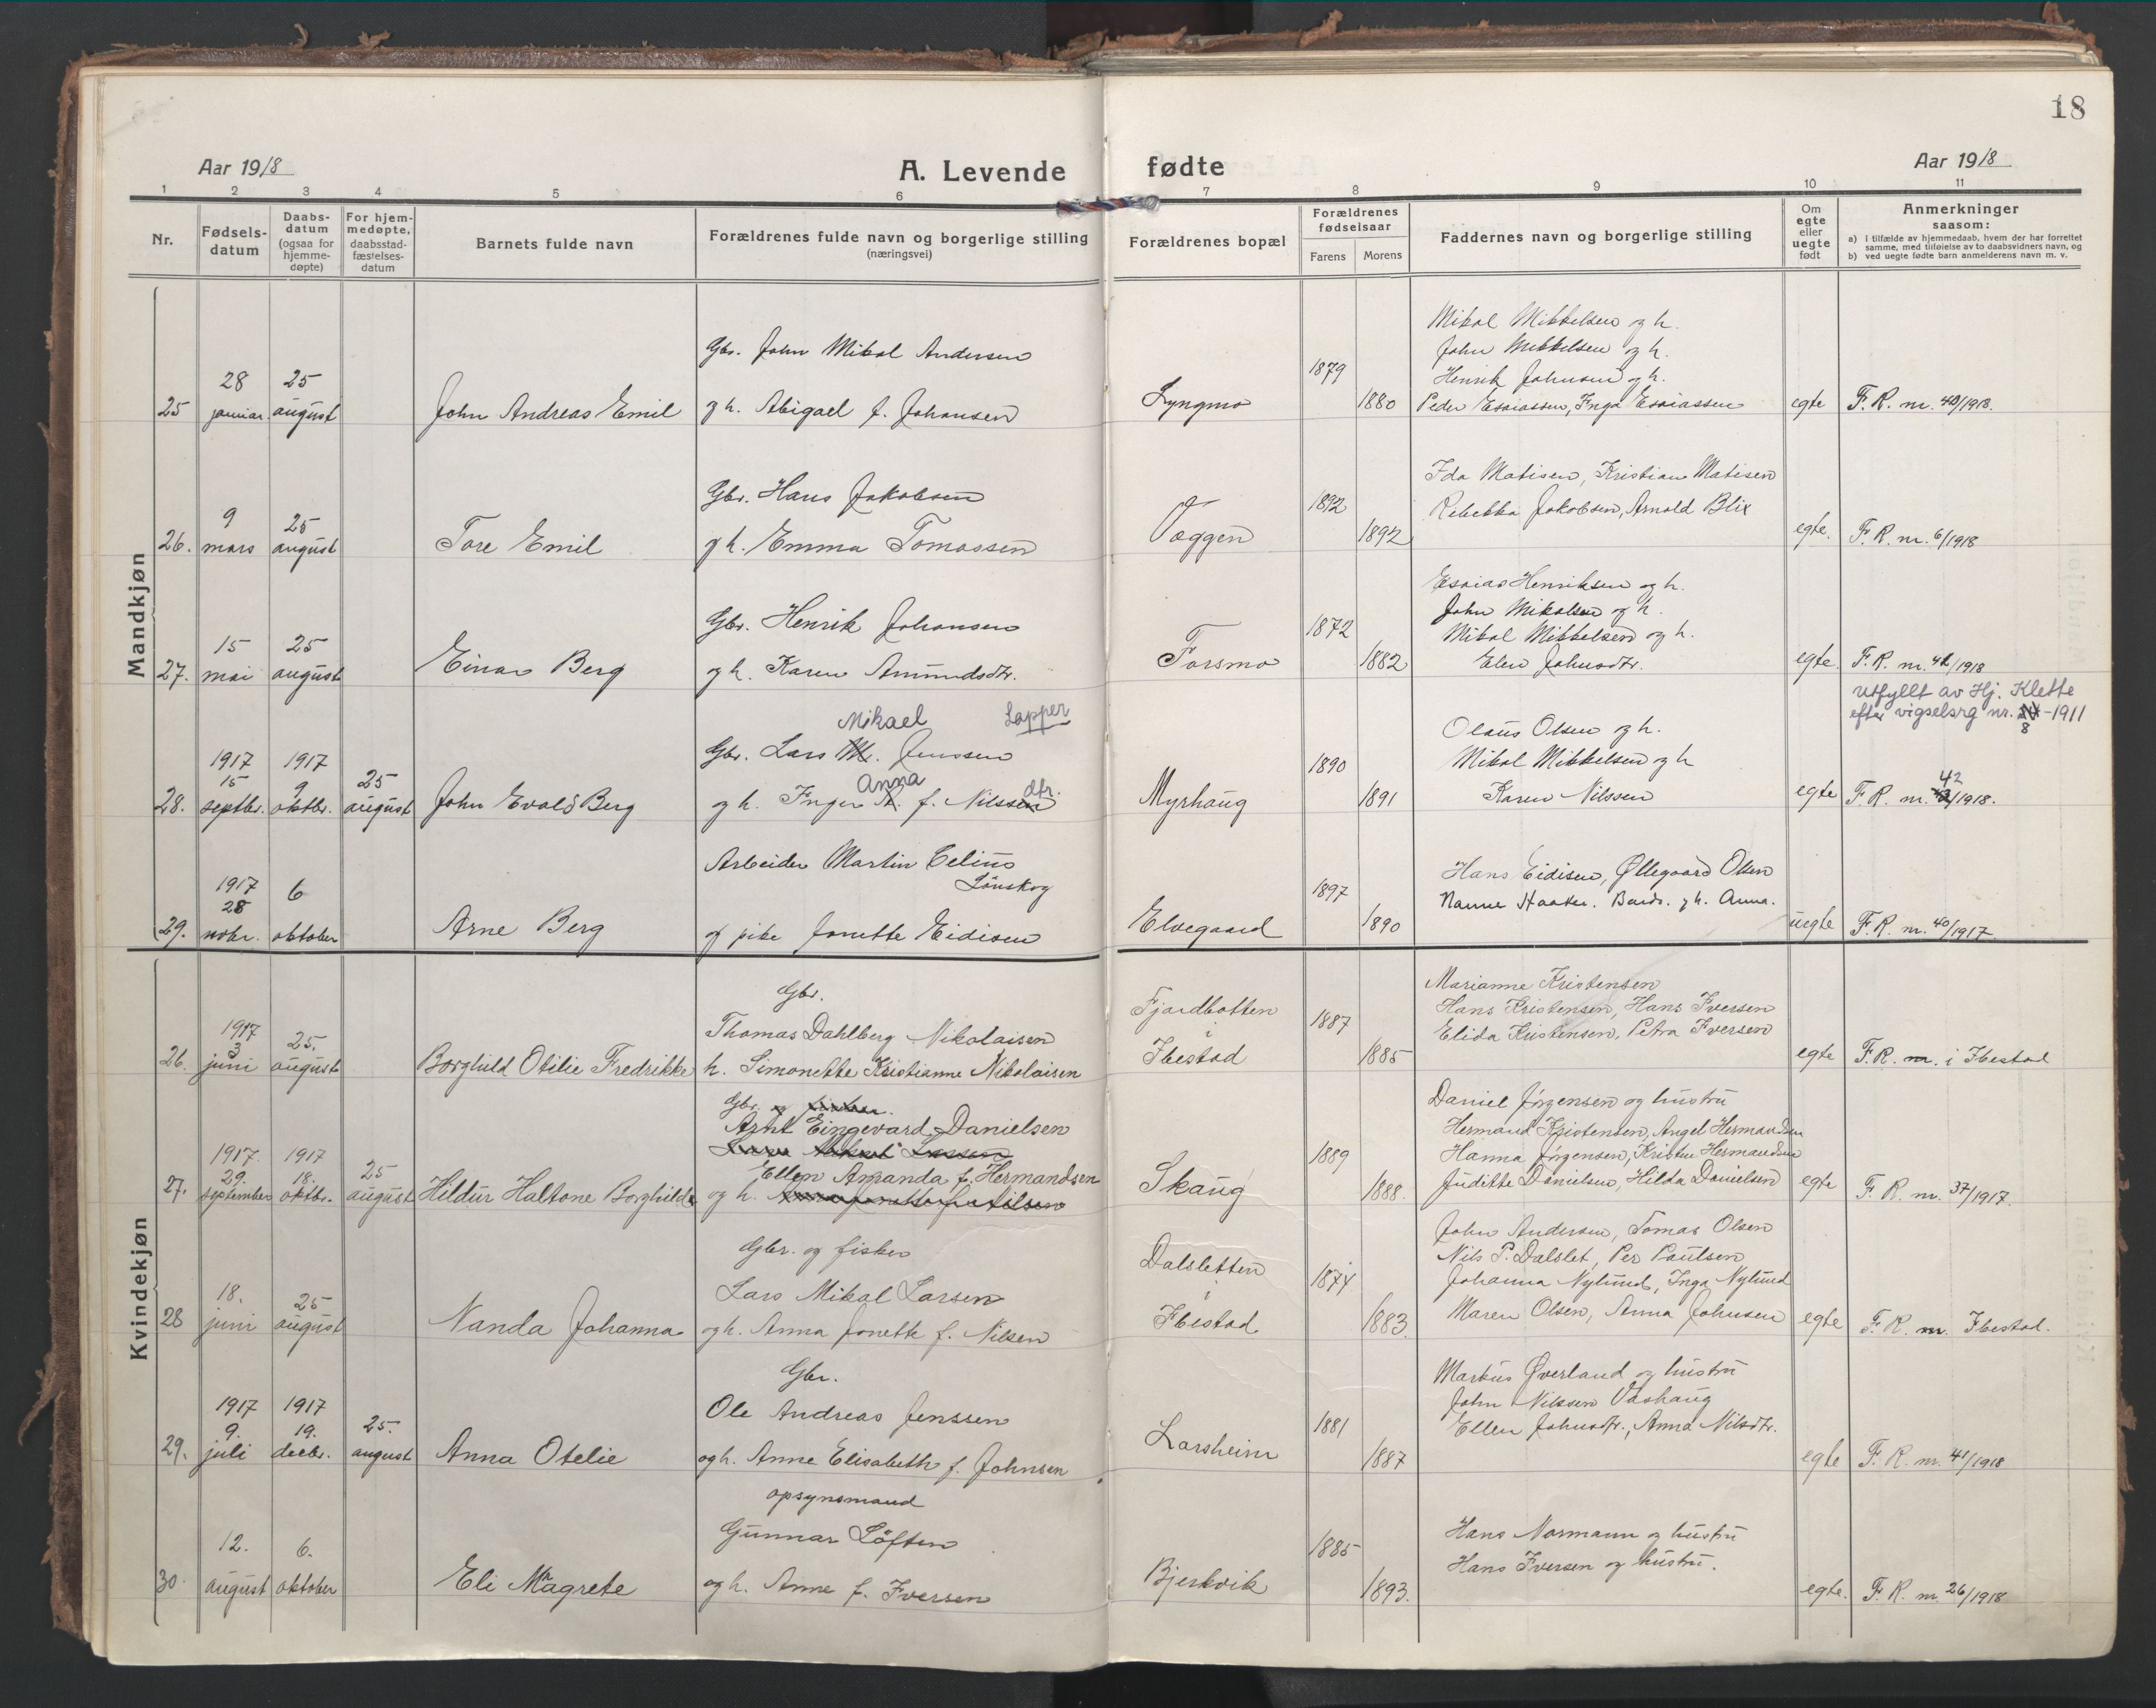 18
Aar 1918
A. Levende
fødte
Aar 1918
1 2 3 4 5 6 7 8 9 10 11
Nr.
Fødsels-
datum
Daabs-
datum
(ogsaa for
hjemme-
døpte)
For hjem-
medøpte,
daabsstad-
fæstelses-
datum
Barnets fulde navn
Forældrenes fulde navn og borgerlige stilling
(næringsvei)
Forældrenes bopæl
Forældrenes
fødselsaar
Farens Morens
Faddernes navn og borgerlige stilling
Om
egte
eller
uegte
født
Anmerkninger
saasom:
a) i tilfælde av hjemmedaab, hvem der har forrettet
samme, med tilføielse av to daabsvidners navn, og
b) ved uegte fødte barn anmelderens navn m. v.
Mandkjøn
25
28
januar
25
august
John Andreas Emil
Gbr. John Mikal Andersen
og h. Abigael f. Johansen
Lyngmo
1879
1880
Mikal Mikkelsen og h.
John Mikkelsen og h.
Henrik Johnsen og h.
Peder Esaiassen, Inga Esaiassen
egte
F. R. nr. 40/1918.
26.
9
mars
25
august
Tore Emil
Gbr. Hans Jakobsen
og h. Emma Tomassen
Væggen
1892
1892
Ida Matisen, Kristian Matisen
Rebekka Jakobsen, Arnold Blix
egte.
F. R. nr. 6/1918
27.
15
mai
25
august
Einar Berg
Gbr. Henrik Johansen
og h. Karen Amundsdtr.
Forsmo
1872
1882
Esaias Henriksen og h.
John Mikalsen og h.
Mikal Mikkelsen og h.
Elen Johnsdtr.
egte.
F. R. nr. 41/1918
utfyllt av Hj. Klette
efter vigselsrg nr. 8-1911
28.
1917
15
septbr.
1917
9
oktbr.
25
august
John Evald Berg
Mikael Lapper
Gbr. Lars M. Jenssen
Anna dtr.
og h. Inger A. f. Nilssen
Myrhaug
1890
1891
Olaus Olsen og h.
Mikal Mikkelsen og h
Karen Nilssen
egte
42
F. R. nr. /1918.
29.
1917
28
novbr.
6
oktober
Arne Berg
Arbeider Martin Celius
Lønskog
og pike Jonette Eidisen
Elvegaard
1897
1890
Hans Eidisen, Øllegaard Olsen
Nanne Haater. Bards. og h. Anna.
uegte
F. R. nr. 40/1917.
Kvindekjøn
26.
1917
3
juni
25.
august
Borghild Otilie Fredrikke
Gbr.
Thomas Dahlberg Nikolaisen
h. Simonette Kristianne Nikolaisen
Fjordbotten
i
Ibestad
1887
1885
Marianne Kristensen
Hans Kristensen, Hans Iversen
Elida Kristensen, Petra Iversen
egte
F. R. nr. i Ibestad
27.
1917.
29.
september
1917
18.
oktbr.
25
august
Hildur Haltone Borghilde
Gbr. og fisker.
Arnt Eingevard Danielsen
Lars Mikal Larsen
Ellen Amanda f. Hermandsen
og h. Anna Jonette f. Nilsen
Skaug
1889
1888.
Daniel Jørgensen og hustru
Hermand Kristensen, Angel Hermandsen
Hanna Jørgensen, Kristine Hermandsen
Juditte Danielsen, Hilda Danielsen
egte
F. R. nr. 37/1917.
28
18.
juni
25
august
Nanda Johanna
Gbr. og fisker
Lars Mikal Larsen
og h. Anna Jonette f. Nilsen
Dalsletten
i
Ibestad
1874
1883.
John Andersen, Tomas Olsen
Nils P. Dalslet, Per Paulsen
Johanna Nylund, Inga Nylund
Maren Olsen, Anna Johnsen
egte
F. R. nr. Ibestad.
29.
1917
9.
juli
1917
19.
decbr.
25.
august
Anna Otelie
Gbr.
Ole Andreas Jenssen
og h. Anne Elisabeth f. Johnsen
Larsheim
1881
1887
Markus Øverland og hustru
John Nilssen Vashaug
Ellen Johnsdtr., Anna Nilsdtr.
egte
F. R. nr. 41/1918
30.
12.
august
6.
oktober
Eli Magrete
opsynsmand
Gunnar Løften
og h. Anne f. Iversen
Bjerkvik
1885
1893.
Hans Normann og hustru
Hans Iversen og hustru.
egte.
F. R. nr. 26/1918